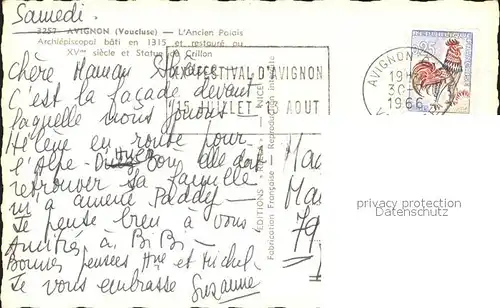 Samedi.
3257 AVIGNON (Vaucluse) — L'Ancien Palais
Archiépiscopal bâti en 1315 et restauré au
XVme siècle et Statue de Crillon
Chère Maman
C'est la façade devant
laquelle nous jouons
Hélène en route pour
l'Alpe d'Huez où elle doit
retrouver sa famille
m'a amené Paddy —
Je pense bien à vous.
Amitiés à BiBi —
Bonnes pensées Hne et Michel
Je vous embrasse Suzanne
FESTIVAL D'AVIGNON
15 JUILLET - 15 AOUT
EDITIONS "RELLA" - NICE
Fabrication Française - Reproduction interdite
AVIGNON
19H
30-
1966
0,25
Mad
Mar
79
privacy protection
Datenschutz